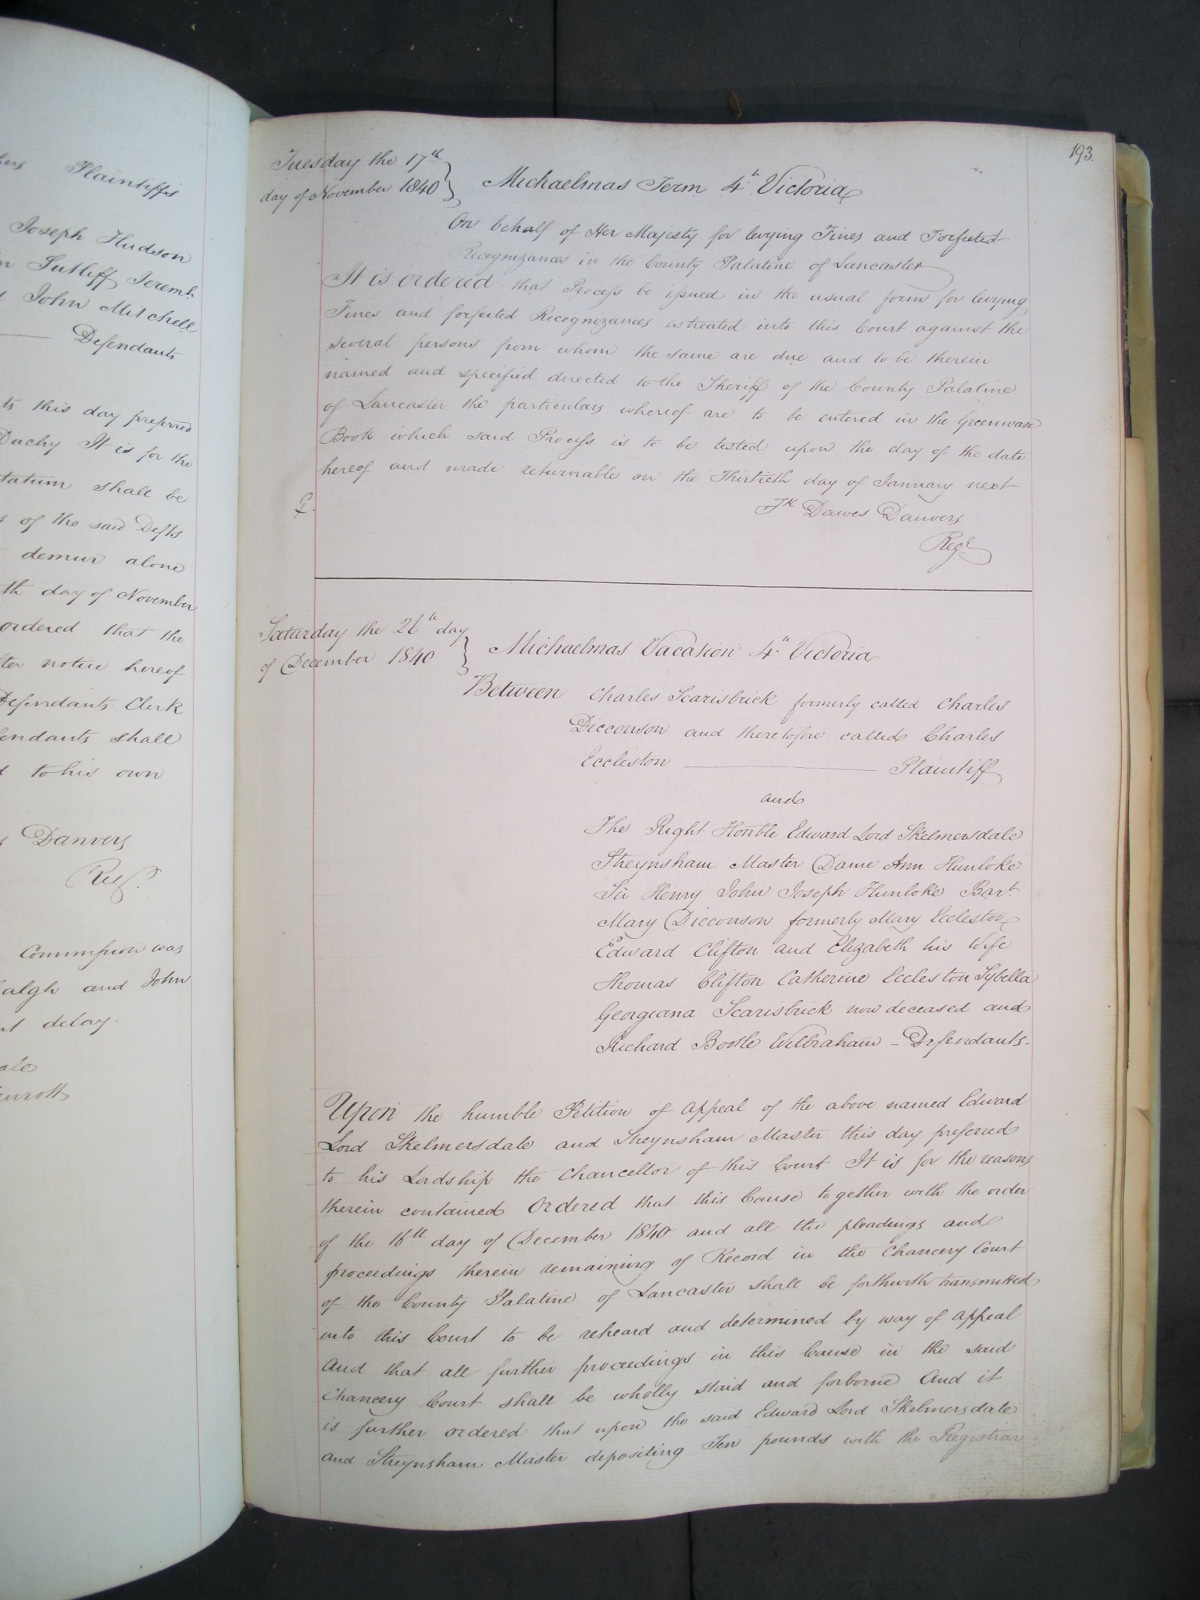 Plaintiffs
Joseph Hudson
Sutliff Jeremh
John Mitchell
Defendants
this day preferred
Duchy It is for the
shall be
of the said Defts
demur alone
th day of November
ordered that the
notice hereof
Defendants Clerk
shall
to his own
Danvers
Regr.
Commission was
and John
delay.
193.
Tuesday the 17th
day of November 1840
Michaelmas Term 4th Victoria
On behalf of Her Majesty for levying Fines and Forfeited
Recognizances in the County Palatine of Lancaster
It is ordered that Process be issued in the usual form for levying
Fines and forfeited Recognizances estreated into this Court against the
several persons from whom the same are due and to be therein
named and specified directed to the Sheriff of the County Palatine
of Lancaster the particulars whereof are to be entered in the Greenwax
Book which said Process is to be tested upon the day of the date
hereof and made returnable on the Thirtieth day of January next
Fk Dawes Danvers
Regr
Saturday the 26th day
of December 1840
Michaelmas Vacation 4th Victoria
Between Charles Scarisbrick formerly called Charles
Dicconson and theretofore called Charles
Eccleston Plaintiff
and
The Right Honble Edward Lord Skelmersdale
Streynsham Master Dame Ann Hunloke
Sir Henry John Joseph Hunloke Bart
Mary Dicconson formerly Mary Eccleston
Edward Clifton and Elizabeth his Wife
Thomas Clifton Catherine Eccleston Sybella
Georgiana Scarisbrick now deceased and
Richard Bootle Wilbraham - Defendants-
Upon the humble Petition of Appeal of the above named Edward
Lord Skelmersdale and Streynsham Master this day preferred
to his Lordship the Chancellor of this Court It is for the reasons
therein contained Ordered that this Cause together with the order
of the 16th day of December 1840 and all the pleadings and
proceedings therein remaining of Record in the Chancery Court
of the County Palatine of Lancaster shall be forthwith transmitted
into this Court to be reheard and determined by way of Appeal
And that all further proceedings in this Cause in the said
Chancery Court shall be wholly staid and forborne And it
is further ordered that upon the said Edward Lord Skelmersdale
and Streynsham Master depositing Ten pounds with the Registrar